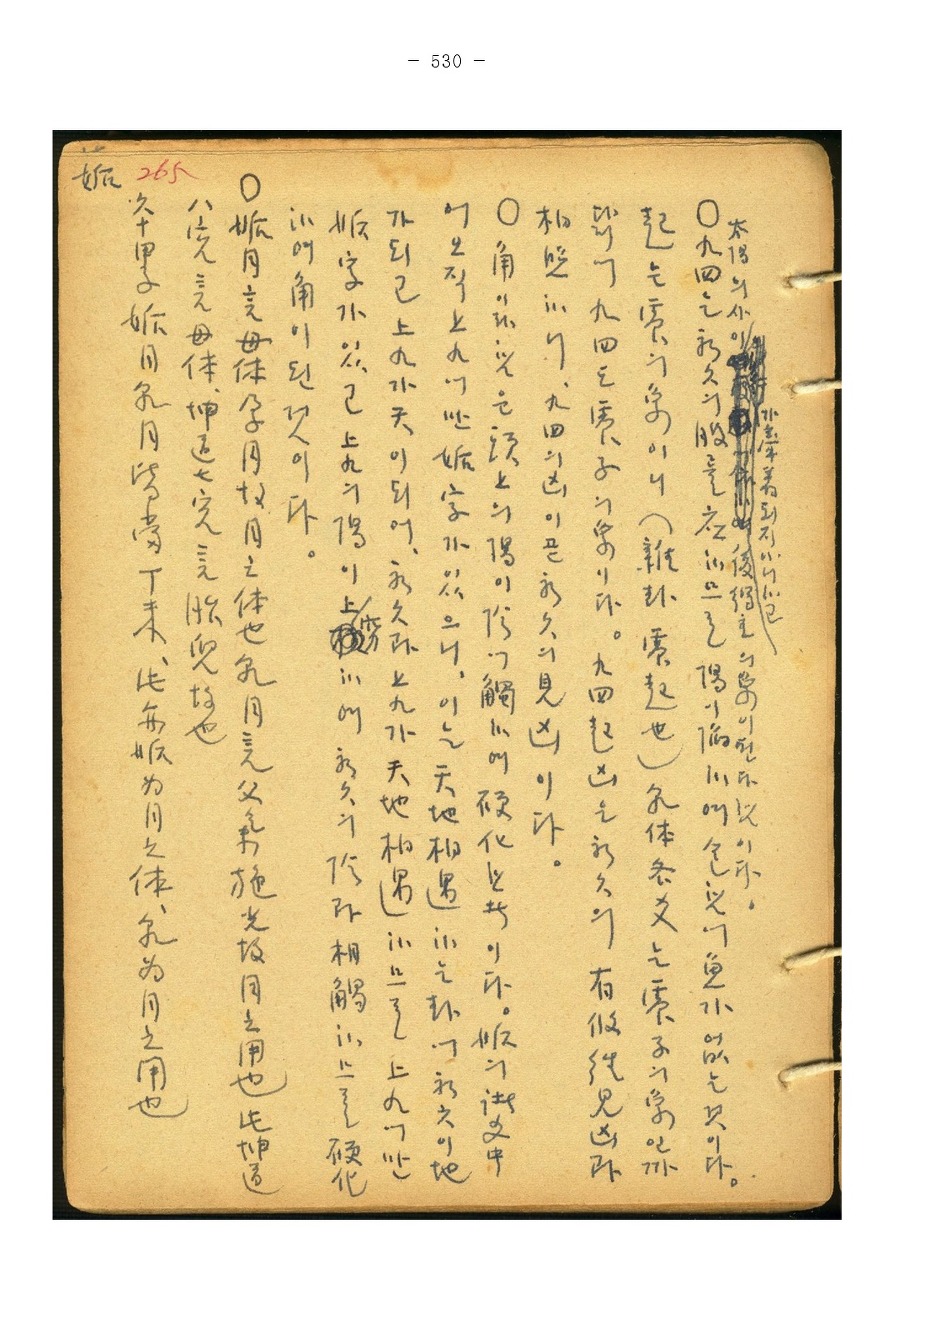 - 530 -
姤 265
太陽의 사이 後得主의 象이 된다 함이다.
가 象著되지 아니하고
○ 九四는 初六의 股를 应하므로 陽이 陷하여 包함이 魚가 없는 것이다.
起는 震의 象이니 (雜卦 震起也) 乳体 各爻는 震子의 象인까
닭에 九四도 震子의 象이다。九四 起凶은 初六의 有攸往見凶과
相照하니、九四의 凶이 곧 初六의 見凶이다。
○ 角이라 함은 頭上의 陽이 陰에 觸하여 硬化한 者이다。姤의 諸爻中
에 오직 上九에만 姤字가 있으니、이는 天地相遇하는 卦에 初六이 地
가 되고 上九가 天이 되어、初六과 上九가 天地相遇하므로 上九에만
姤字가 있고 上九의 陽이 上窮하여 初六의 陰과 相觸하므로 硬化
하여 角이 된 것이다。
○ 姤月言母体孕月故月之体也 乳月言父氣施光故月之用也 此坤道
八宪言母体、坤道七宪言胎兒故也
六十甲子 姤月乳月皆當丁未、此亦姤为月之体、乳为月之用也